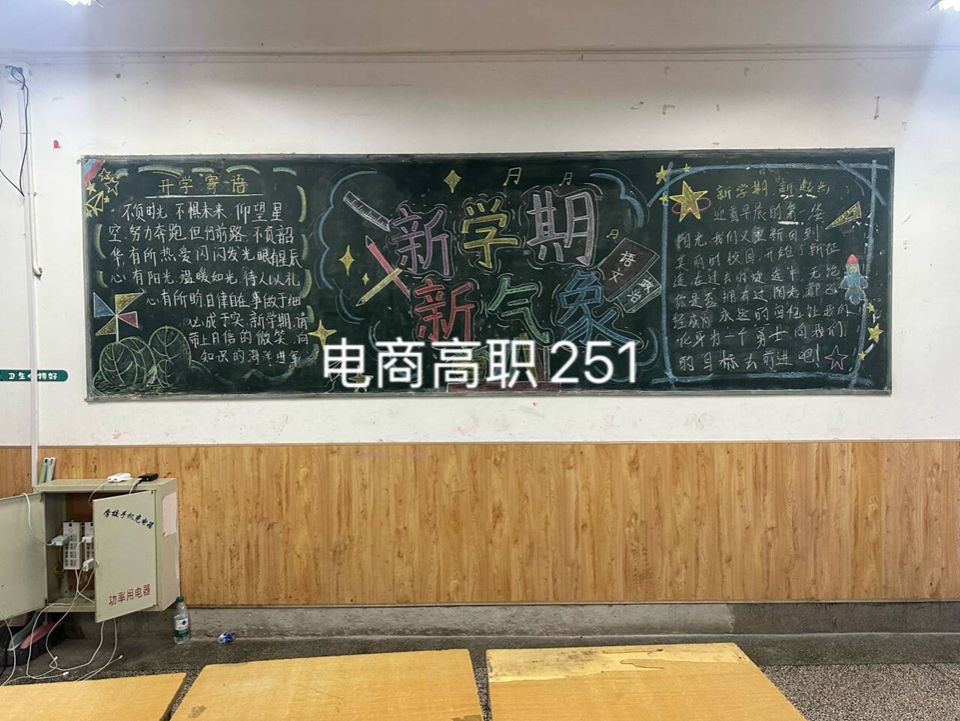 开学寄语
不负时光 不惧未来 仰望星
空 努力奔跑 但行前路 不负韶
华 有所热爱 闪闪发光 眼有星辰
心有阳光 温暖如光 待人以礼
心有所盼 日津自在 事做于细
业成于实 新学期 请
带上自信的微笑 向
知识的海洋进军
新学期
新气象
语文
英语
电商高职251
新学期 新起点
迎着早晨的第一缕
阳光 我们又重新回到
美丽的校园 开始了新征
途 在过去的
你是否拥有过阳光 都已
经成为永远的回忆 让我们
化身为一个勇士 向我们
的目标去前进吧!
卫生 特好
学校手机充电箱
功率用电器